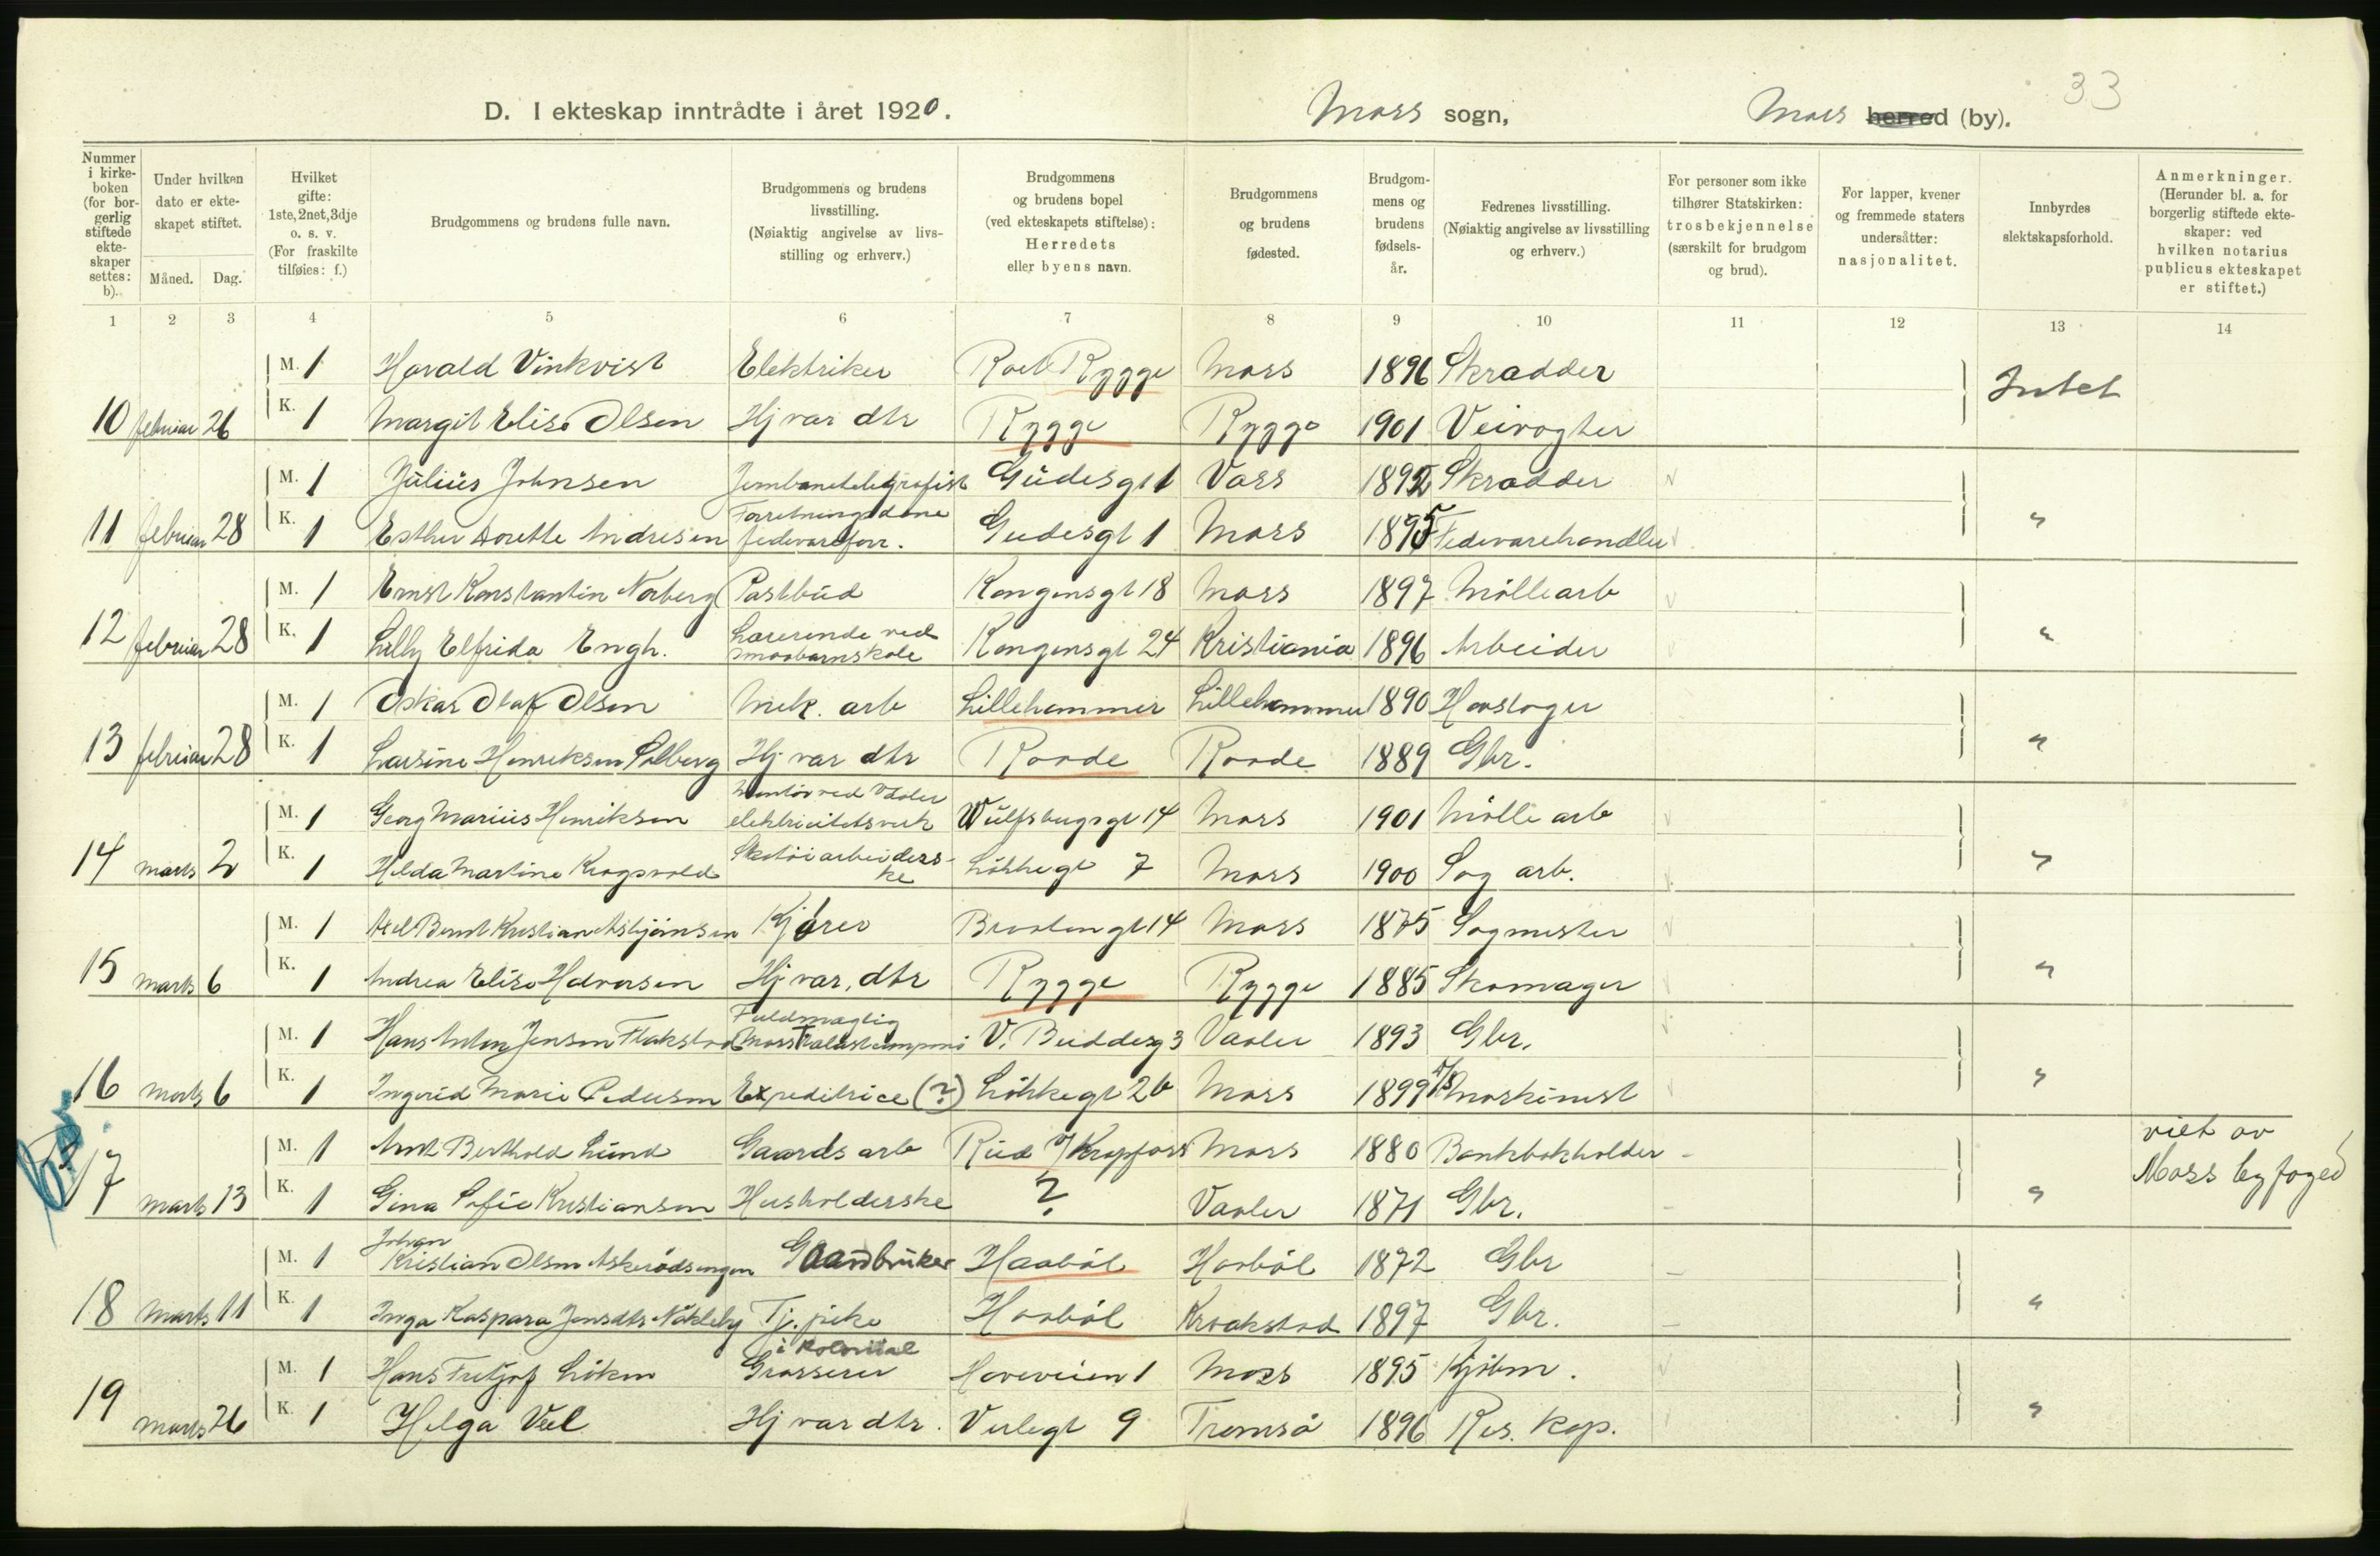 33
D. I ekteskap inntrådte i året 1920. Moss sogn, Moss herred (by).
Nummer i kirkeboken (for borgerlig stiftede ekteskaper settes: b).
Under hvilken dato er ekteskapet stiftet.
Måned. Dag.
Hvilket gifte: 1ste, 2net, 3dje o. s. v. (For fraskilte tilføies: f.)
Brudgommens og brudens fulle navn.
Brudgommens og brudens livsstilling. (Nøiaktig angivelse av livsstilling og erhverv.)
Brudgommens og brudens bopel (ved ekteskapets stiftelse): Herredets eller byens navn.
Brudgommens og brudens fødested.
Brudgommens og brudens fødselsår.
Fedrenes livsstilling. (Nøiaktig angivelse av livsstilling og erhverv.)
For personer som ikke tilhører Statskirken: trosbekjennelse (særskilt for brudgom og brud).
For lapper, kvener og fremmede staters undersåtter: nasjonalitet.
Innbyrdes slektskapsforhold.
Anmerkninger. (Herunder bl. a. for borgerlig stiftede ekteskaper: ved hvilken notarius publicus ekteskapet er stiftet.)
1 2 3 4 5 6 7 8 9 10 11 12 13 14
M. 1 Harald Vinkvist Elektriker Rygge Moss 1896 Skrædder Intet
10 februar 26 K. 1 Margit Elise Olsen Hj var dtr Rygge Rygge 1901 Veivogter
M. 1 Julius Johnsen Jernbanetelegrafist Gudesgt 1 Vass 1892 Skrædder
11 februar 28 K. 1 Esther Dorette Andresen Forretningsdame fedevareforr. Gudesgt 1 Moss 1895 Fedevarehandler "
M. 1 Ernst Konstantin Norberg Postbud Kongensgt 18 Moss 1897 Møllearb
12 februar 28 K. 1 Lilly Elfrida Engh. Lærerinde ved smaabarnskole Kongensgt 24 Kristiania 1896 Arbeider "
M. 1 Oskar Olaf Olsen Mek. arb Lillehammer Lillehammer 1890
13 februar 28 K. 1 Larsine Henriksen Solberg Hj var dtr Raade Raade 1889 Gbr. "
M. 1 Georg Marius Henriksen Montør ved elektricitetsverk Wulfsbergsgt 14 Moss 1901 Mølle arb
14 marts 2 K. 1 Hilda Martine Krogsvold Skotøiarbeiderske Løkkegt 7 Moss 1900 Sag arb. "
M. 1 Axel Bernt Kristian Asbjørnsen Kjører Braatengt 14 Moss 1875 Sagmester
15 marts 6 K. 1 Andrea Elise Halvorsen Hj var. dtr Rygge Rygge 1885 Skomager "
M. 1 Hans Anton Jensen Flakstad Fuldmægtig V. Buddesg 3 Vaaler 1893 Gbr.
16 marts 6 K. 1 Ingerid Marie Pedersen Expeditrice (?) Løkkegt 2b Moss 1899 Maskinist "
M. 1 Arnt Berthold Lund Gaards arb Rud i Kropfoss Moss 1880 Bankbokholder - viet av
17 marts 13 K. 1 Gina Sofie Kristiansen Husholderske ? Vaaler 1871 Gbr. - " Moss byfoged
M. 1 Johan Kristian Olsen Askerødsengen Gaardbruker Haabøl Haabøl 1872 Gbr -
18 marts 11 K. 1 Inga Kaspara Jensdtr Nøkleby Tj. pike Haabøl Kraakstad 1897 Gbr. - "
M. 1 Hans Fritjof Løken Grosserer i kolonial Haveveien 1 Moss 1895 Kjøbm.
19 marts 26 K. 1 Helga Veel Hj var dtr. Verlegt 9 Tromsø 1896 Res. kap. "